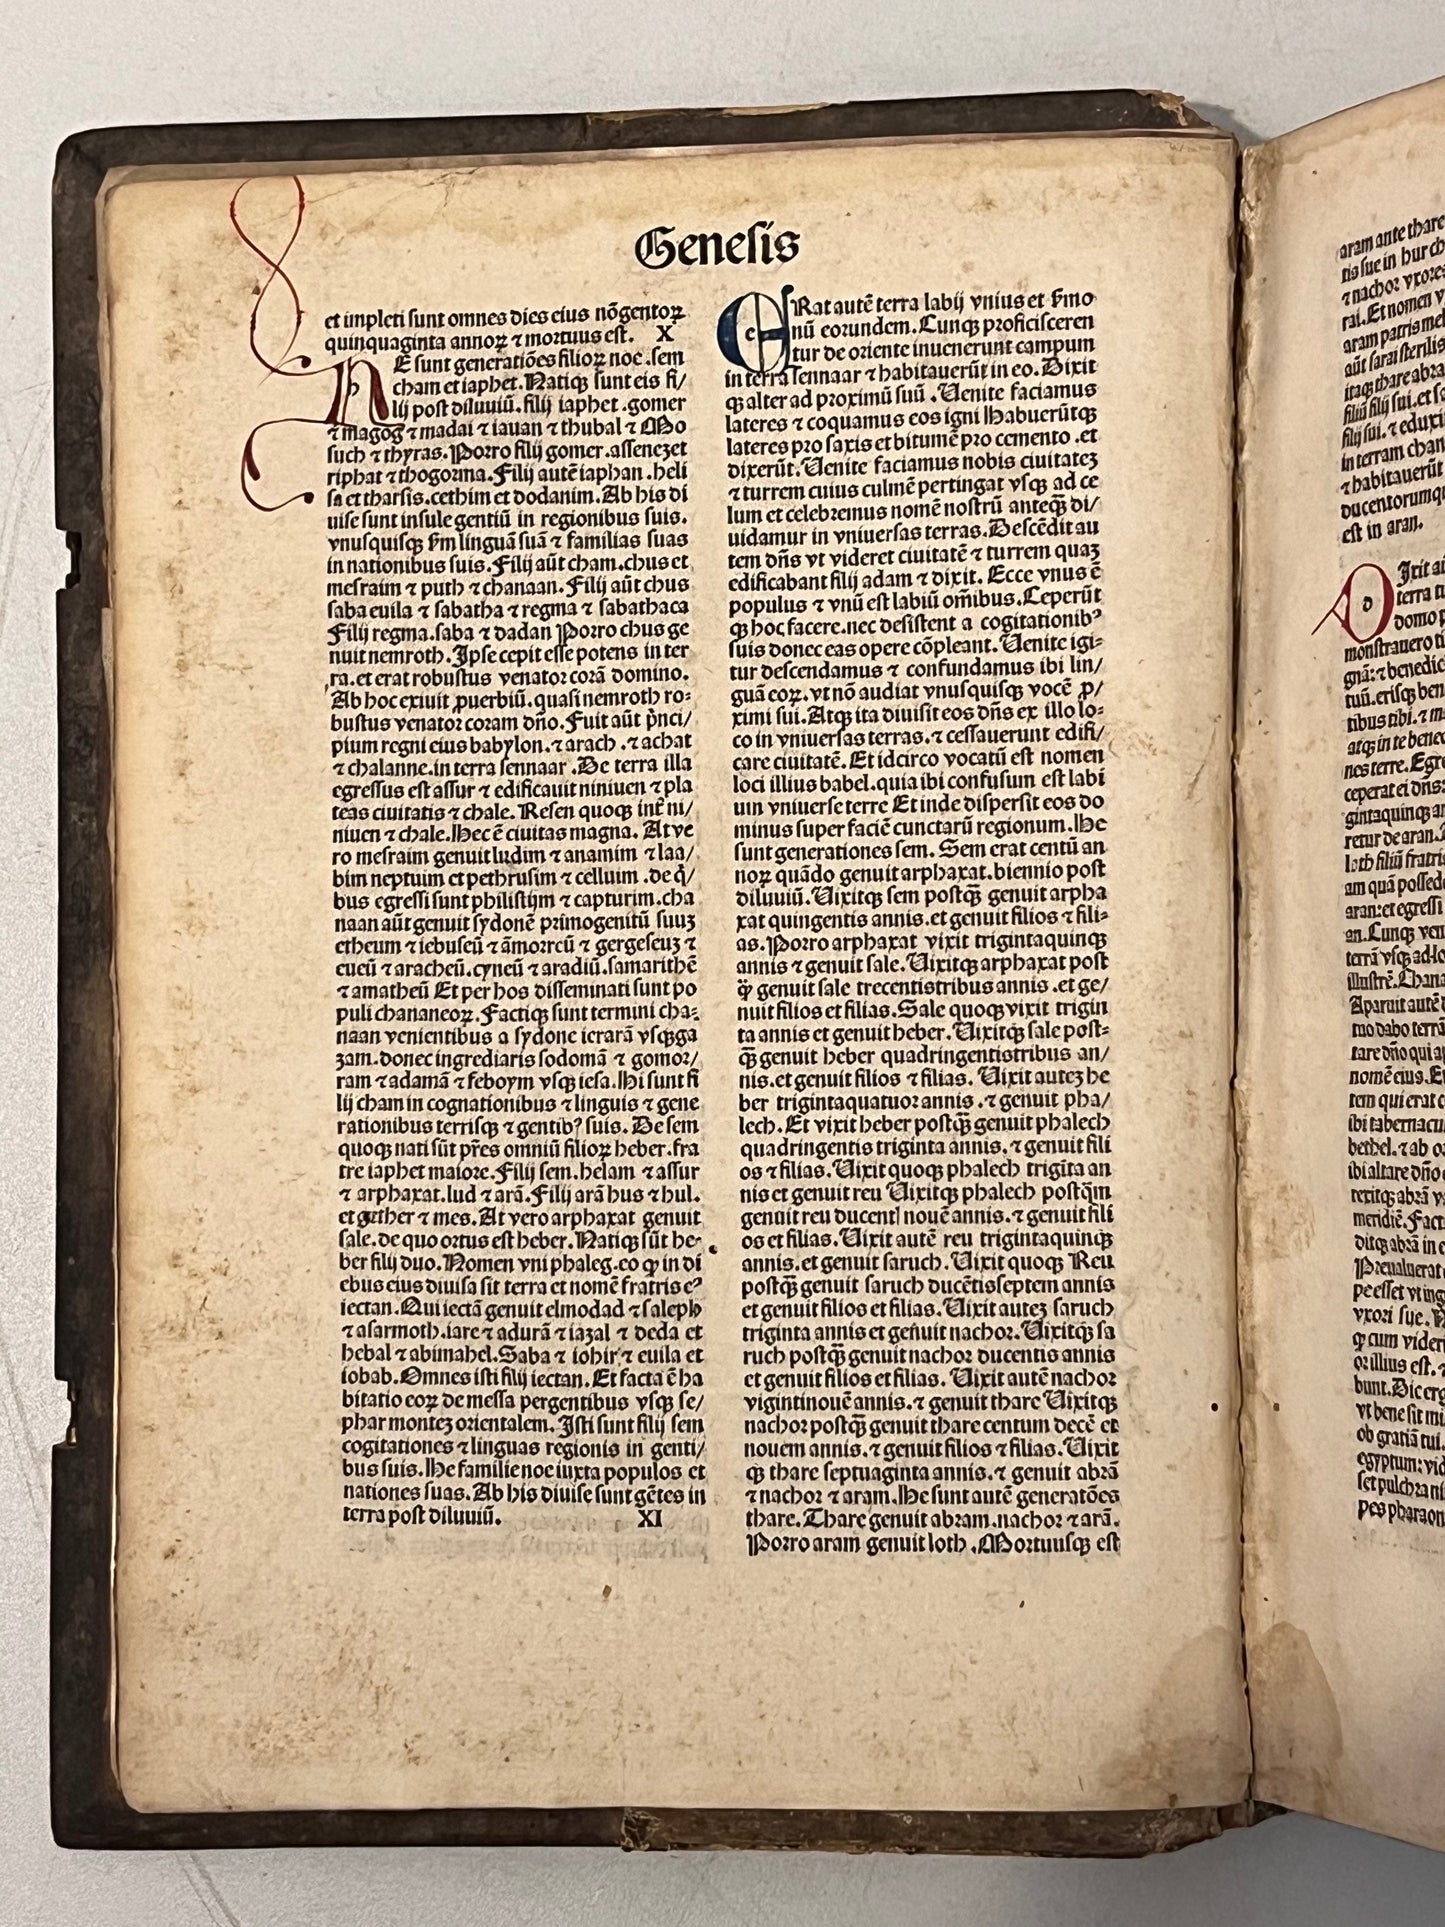 Genesis
et impleti sunt omnes dies eius nõgentoꝝ
quinquaginta annoꝝ ⁊ mortuus est. X
hE sunt generatiões filioꝝ noe .sem
cham et iaphet. Natiqꝫ sunt eis fi/
lij post diluuiũ. filij iaphet .gomer
⁊ magog ⁊ madai ⁊ iauan ⁊ thubal ⁊ Mo
such ⁊ thyras. Porro filij gomer .assenez et
riphat ⁊ thogorma. Filij autẽ iaphan .heli
sa et tharsis. cethim et dodanim. Ab his di
uise sunt insule gentiũ in regionibus suis.
vnusquisqꝫ ẜm linguã suã ⁊ familias suas
in nationibus suis. Filij aũt cham. chus et
mesraim ⁊ puth ⁊ chanaan. Filij aũt chus
saba euila ⁊ sabatha ⁊ regma ⁊ sabathaca
Filij regma. saba ⁊ dadan Porro chus ge
nuit nemroth. Ipse cepit esse potens in ter
ra. et erat robustus venator corã domino.
Ab hoc exiuit ꝓuerbiũ. quasi nemroth ro:
bustus venator coram dño. Fuit aũt pͥnci/
pium regni eius babylon. ⁊ arach . ⁊ achat
⁊ chalanne. in terra sennaar . De terra illa
egressus est assur ⁊ edificauit niniuen ⁊ pla
teas ciuitatis ⁊ chale. Resen quoqꝫ int̃ ni/
niuen ⁊ chale. Hec ẽ ciuitas magna. At ve
ro mesraim genuit ludim ⁊ anamim ⁊ laa/
bim neptuim et pethrusim ⁊ celluim . de qͥ/
bus egressi sunt philistijm ⁊ capturim. cha
naan aũt genuit sydonẽ primogenitũ suuꝫ
etheum ⁊ iebuseũ ⁊ ãmorreũ ⁊ gergeseuꝫ ⁊
eueũ ⁊ aracheũ. cyneũ ⁊ aradiũ. samarithẽ
⁊ amatheũ Et per hos disseminati sunt po
puli chananeoꝝ. Factiqꝫ sunt termini cha:
naan venientibus a sydone ierarã vsqꝫ ga
zam. donec ingrediaris sodomã ⁊ gomor/
ram ⁊ adamã ⁊ seboym vsqꝫ iesa. Hi sunt fi
lij cham in cognationibus ⁊ linguis ⁊ gene
rationibus terrisqꝫ ⁊ gentibꝰ suis. De sem
quoqꝫ nati sũt pr̃es omniũ filioꝝ heber. fra
tre iaphet maiore. Filij sem. helam ⁊ assur
⁊ arphaxat. lud ⁊ arã. Filij arã hus ⁊ hul.
et gether ⁊ mes. At vero arphaxat genuit
sale. de quo ortus est heber. Natiqꝫ sũt he:
ber filij duo. Nomen vni phaleg. eo ꝙ in di
ebus eius diuisa sit terra et nomẽ fratris eꝰ
iectan. Qui iectã genuit elmodad ⁊ saleph
⁊ asarmoth. iare ⁊ adurã ⁊ iazal ⁊ deda et
hebal ⁊ abimahel. Saba ⁊ iohir ⁊ euila et
iobab. Omnes isti filij iectan. Et facta ẽ ha
bitatio eoꝝ de messa pergentibus vsqꝫ se/
phar monteꝫ orientalem. Isti sunt filij sem
cogitationes ⁊ linguas regionis in genti/
bus suis. He familie noe iuxta populos et
nationes suas. Ab his diuise sunt gẽtes in
terra post diluuiũ. XI
eRat autẽ terra labij vnius et ẜmo
nũ eorundem. Cunqꝫ proficisceren
tur de oriente inuenerunt campum
in terra sennaar ⁊ habitauerũt in eo. Dixit
qꝫ alter ad proximũ suũ . Uenite faciamus
lateres ⁊ coquamus eos igni Habuerũtqꝫ
lateres pro saxis et bitumẽ pro cemento .et
dixerũt. Uenite faciamus nobis ciuitateꝫ
⁊ turrem cuius culmẽ pertingat vsqꝫ ad ce
lum et celebremus nomẽ nostrũ anteqꝫ̃ di/
uidamur in vniuersas terras. Descẽdit au
tem dñs vt videret ciuitatẽ ⁊ turrem quaꝫ
edificabant filij adam ⁊ dixit. Ecce vnus ẽ
populus ⁊ vnũ est labiũ om̃ibus. Ceperũt
qꝫ hoc facere. nec desistent a cogitationibꝰ
suis donec eas opere cõpleant. Uenite igi=
tur descendamus ⁊ confundamus ibi lin/
guã eoꝝ. vt nõ audiat vnusquisqꝫ vocẽ ꝓ/
ximi sui. Atqꝫ ita diuisit eos dñs ex illo lo=
co in vniuersas terras. ⁊ cessauerunt edifi/
care ciuitatẽ. Et idcirco vocatũ est nomen
loci illius babel. quia ibi confusum est labi
um vniuerse terre Et inde dispersit eos do
minus super faciẽ cunctarũ regionum. He
sunt generationes sem. Sem erat centũ an
noꝝ quãdo genuit arphaxat. biennio post
diluuiũ. Uixitqꝫ sem postqꝫ̃ genuit arpha
xat quingentis annis. et genuit filios ⁊ fili=
as. Porro arphaxat vixit trigintaquinqꝫ
annis ⁊ genuit sale. Uixitqꝫ arphaxat post
qꝫ̃ genuit sale trecentistribus annis .et ge/
nuit filios et filias. Sale quoqꝫ vixit trigin
ta annis et genuit heber. Uixitqꝫ sale post=
qꝫ̃ genuit heber quadringentistribus an/
nis. et genuit filios ⁊ filias. Uixit auteꝫ he
ber trigintaquatuor annis .⁊ genuit pha/
lech. Et vixit heber postqꝫ̃ genuit phalech
quadringentis triginta annis. ⁊ genuit fili
os ⁊ filias. Uixit quoqꝫ phalech trigĩta an
nis et genuit reu Uixitqꝫ phalech postqꝫ̃m
genuit reu ducenti nouẽ annis. ⁊ genuit fili
os et filias. Uixit autẽ reu trigintaquinqꝫ
annis. et genuit saruch. Uixit quoqꝫ Reu
postqꝫ̃ genuit saruch ducẽtisseptem annis
et genuit filios et filias. Uixit auteꝫ saruch
triginta annis et genuit nachor. Uixitqꝫ sa
ruch postqꝫ̃ genuit nachor ducentis annis
et genuit filios et filias. Uixit autẽ nachor
vigintinouẽ annis. ⁊ genuit thare Uixitqꝫ
nachor postqꝫ̃ genuit thare centum decẽ et
nouem annis. ⁊ genuit filios ⁊ filias. Uixit
qꝫ thare septuaginta annis. ⁊ genuit abrã
⁊ nachor ⁊ aram. He sunt autẽ generatões
thare. Thare genuit abram. nachor ⁊ arã.
Porro aram genuit loth . Mortuusqꝫ est
aram ante thare
tis sue in hur ch
⁊ nachor vxores
rai. Et nomen v
aram patris mel
aũt sarai sterilis
itaqꝫ thare abra
filiũ filij sui. et sa
filij sui. ⁊ eduxi
in terram chan
⁊ habitauerũt
ducentorumqꝫ
est in aran.
dIxit au
terra tu
domo p
monstrauero ti
gnã: ⁊ benedic
tuũ. erisqꝫ ben
tibus tibi. ⁊ m
atqꝫ in te bened
nes terre. Egre
ceperat ei dñs:
gintaquinqꝫ an
retur de aran.
loth filiũ fratris
am quã possede
aran: et egressi
an. Cunqꝫ ven
terrã vsqꝫ ad lo
illustrẽ. Chana
Aparuit autẽ d
tuo dabo terrã
tare dño qui ap
nomẽ eius. Et
tem qui erat c
ibi tabernacul
bethel. ⁊ ab or
ibi altare dño
rexitqꝫ abrã v
meridiẽ. Fact
ditqꝫ abrã in e
Preualuerat
pe esset vt ing
vxori sue. N
ꝙ cum viderin
or illius est. ⁊
bunt. Dic erg
vt bene sit mi
ob gratiã tui.
egyptum: vid
set pulchra ni
pes pharaon